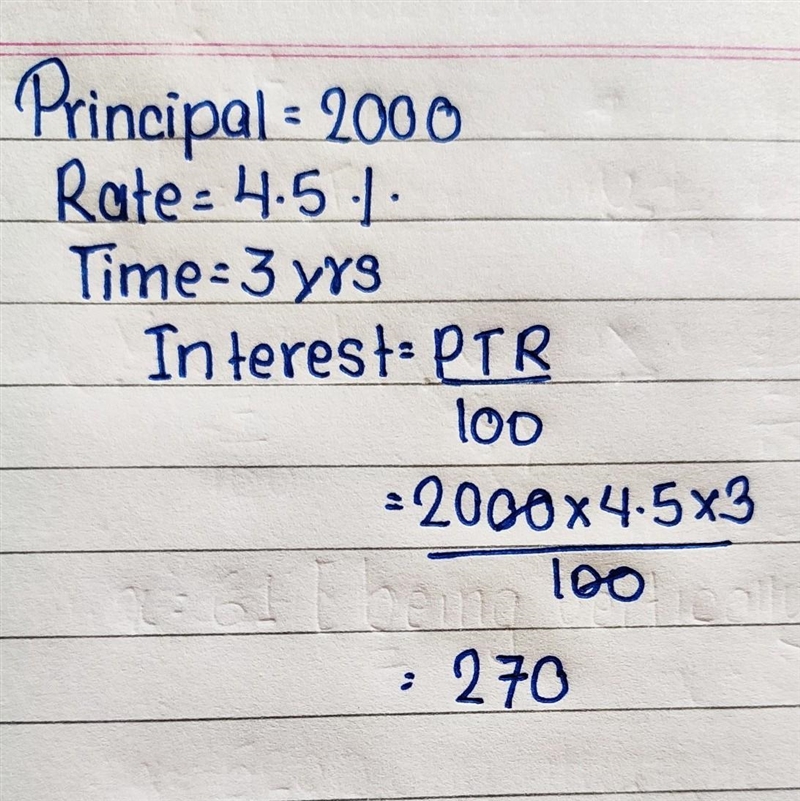 Principal = 2000
Rate = 4.5 %
Time = 3 yrs
Interest = PTR
100
= 2000 x 4.5 x 3
100
= 270